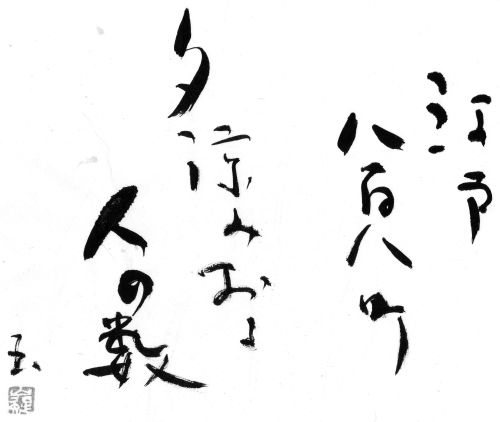 江戸
八百八町
夕涼みおよ
人の数
玉